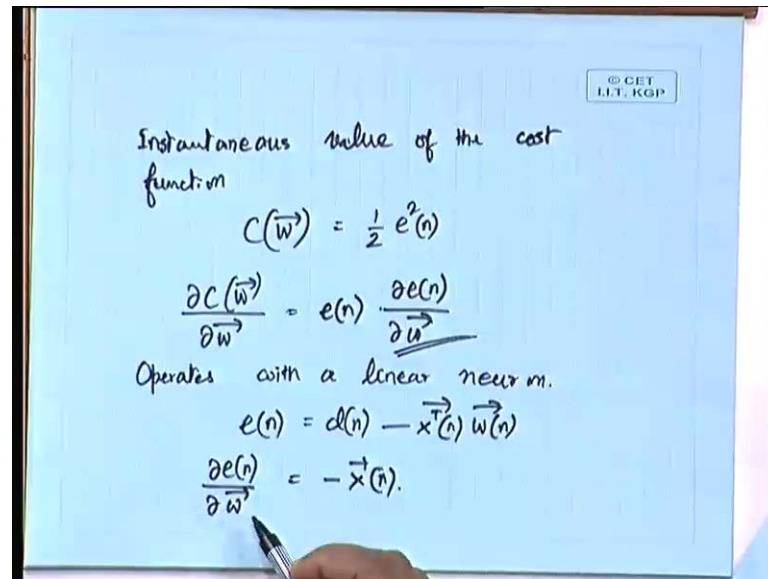 © CET
I.I.T. KGP
Instantaneous value of the cost
function
C(w⃗) = 1/2 e²(n)
∂C(w⃗)/∂w⃗ = e(n) · ∂e(n)/∂w⃗
Operates with a linear neuron.
e(n) = d(n) — x⃗ᵀ(n) w⃗(n)
∂e(n)/∂w⃗ = - x⃗(n).